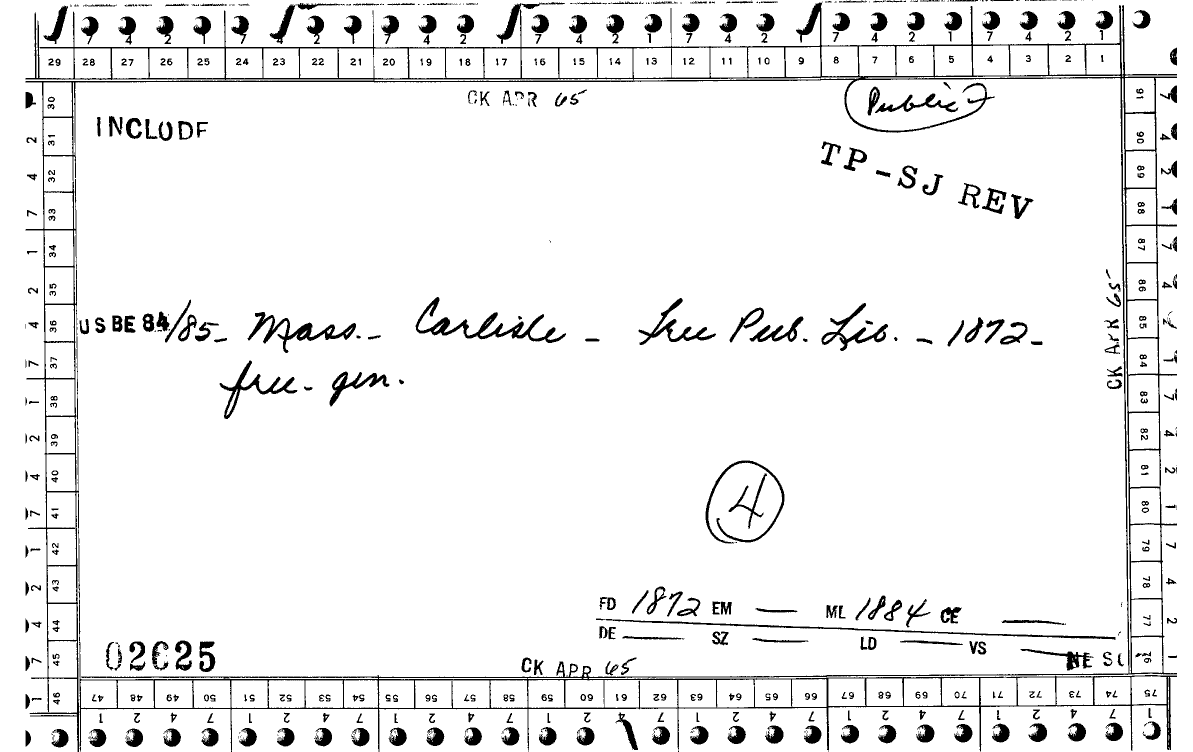 7 4 2 1 7 4 2 1 7 4 2 1 7 4 2 1 7 4 2 1 7 4 2 1 7 4 2 1
29 28 27 26 25 24 23 22 21 20 19 18 17 16 15 14 13 12 11 10 9 8 7 6 5 4 3 2 1
CK APR 65
Public
INCLUDE
TP-SJ REV
USBE 84/85- Mass.- Carlisle - Free Pub. Lib. - 1872-
free- gen.
4
FD 1872 EM — ML 1884 CE —
DE — SZ — LD — VS —
NE SC
02625
CK APR 65
CK APR 65
30 31 32 33 34 35 36 37 38 39 40 41 42 43 44 45 46
1 2 4 7 1 2 4 7 1 2 4 7 1 2 4 7 1
91 90 89 88 87 86 85 84 83 82 81 80 79 78 77 76
47 48 49 50 51 52 53 54 55 56 57 58 59 60 61 62 63 64 65 66 67 68 69 70 71 72 73 74 75
1 2 4 7 1 2 4 7 1 2 4 7 1 2 4 7 1 2 4 7 1 2 4 7 1 2 4 7 1